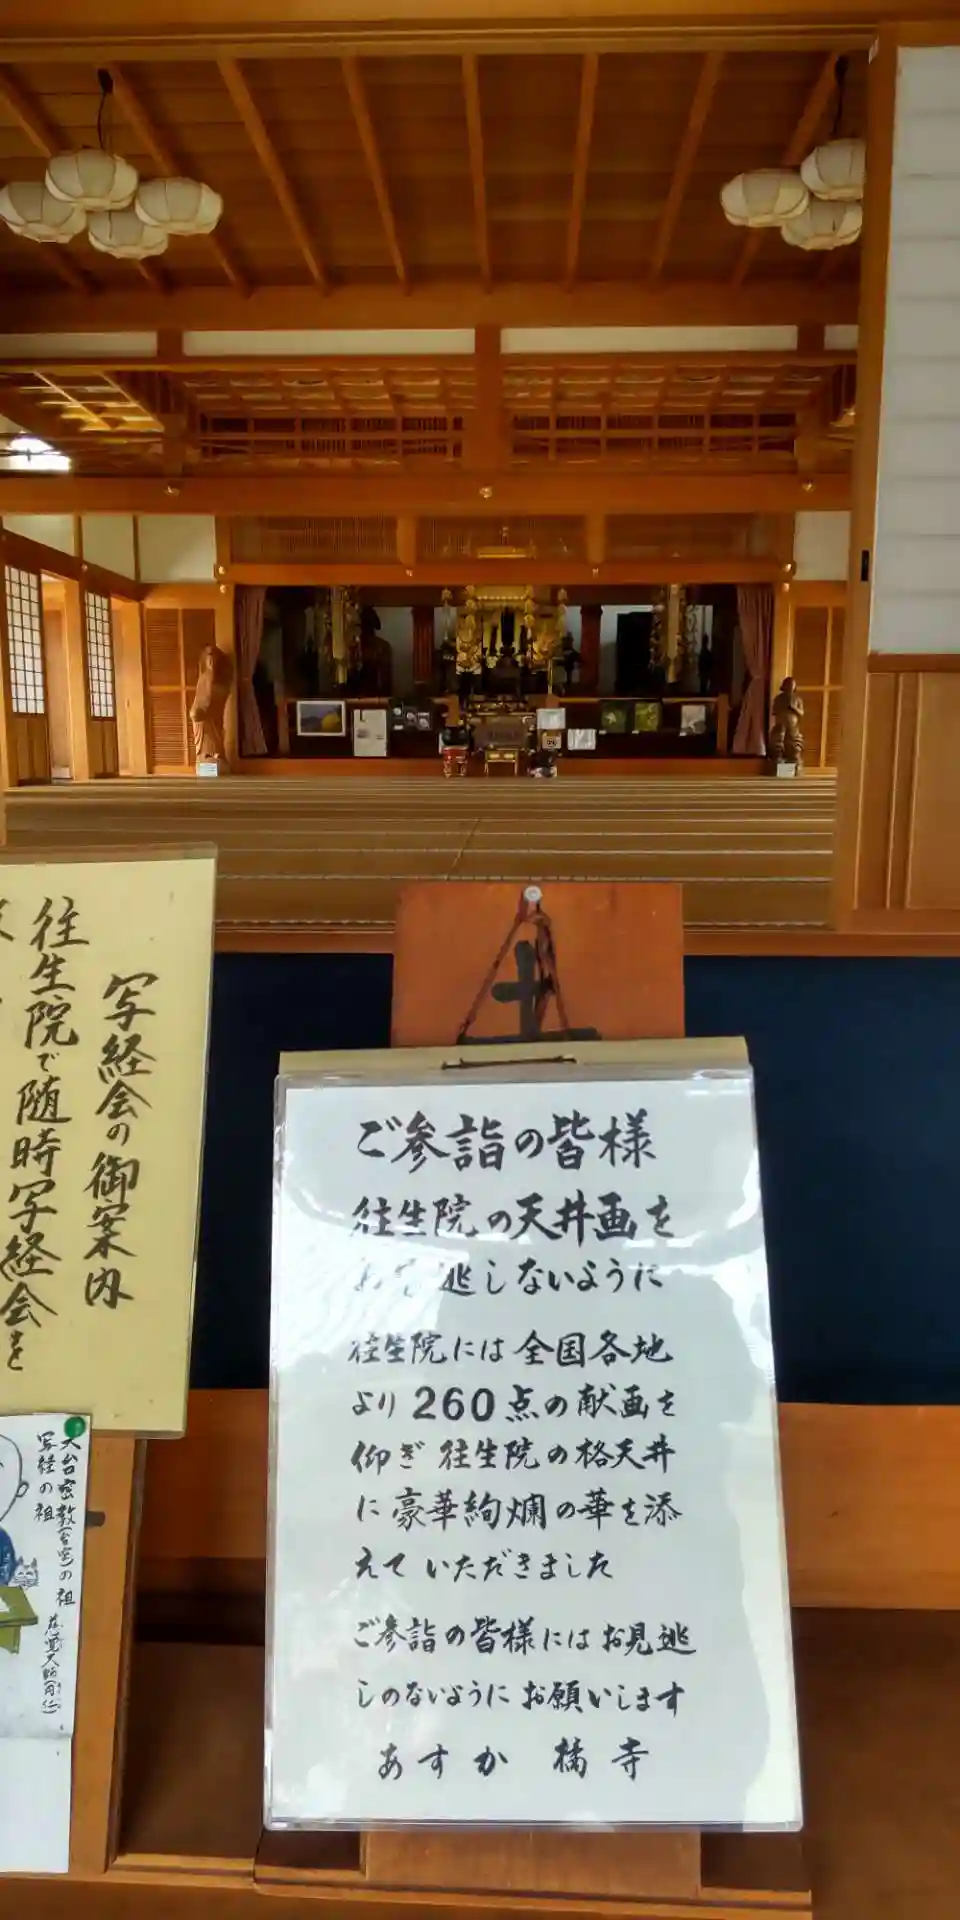 写経会の御案内
往生院で随時写経会を
土
ご参詣の皆様
往生院の天井画を
お見逃しないように
往生院には全国各地
より260点の献画を
仰ぎ往生院の格天井
に豪華絢爛の華を添
えていただきました
ご参詣の皆様にはお見逃
しのないようにお願いします
あすか 橘寺
天台密教(台密)の祖
写経の祖
慈覚大師(円仁)